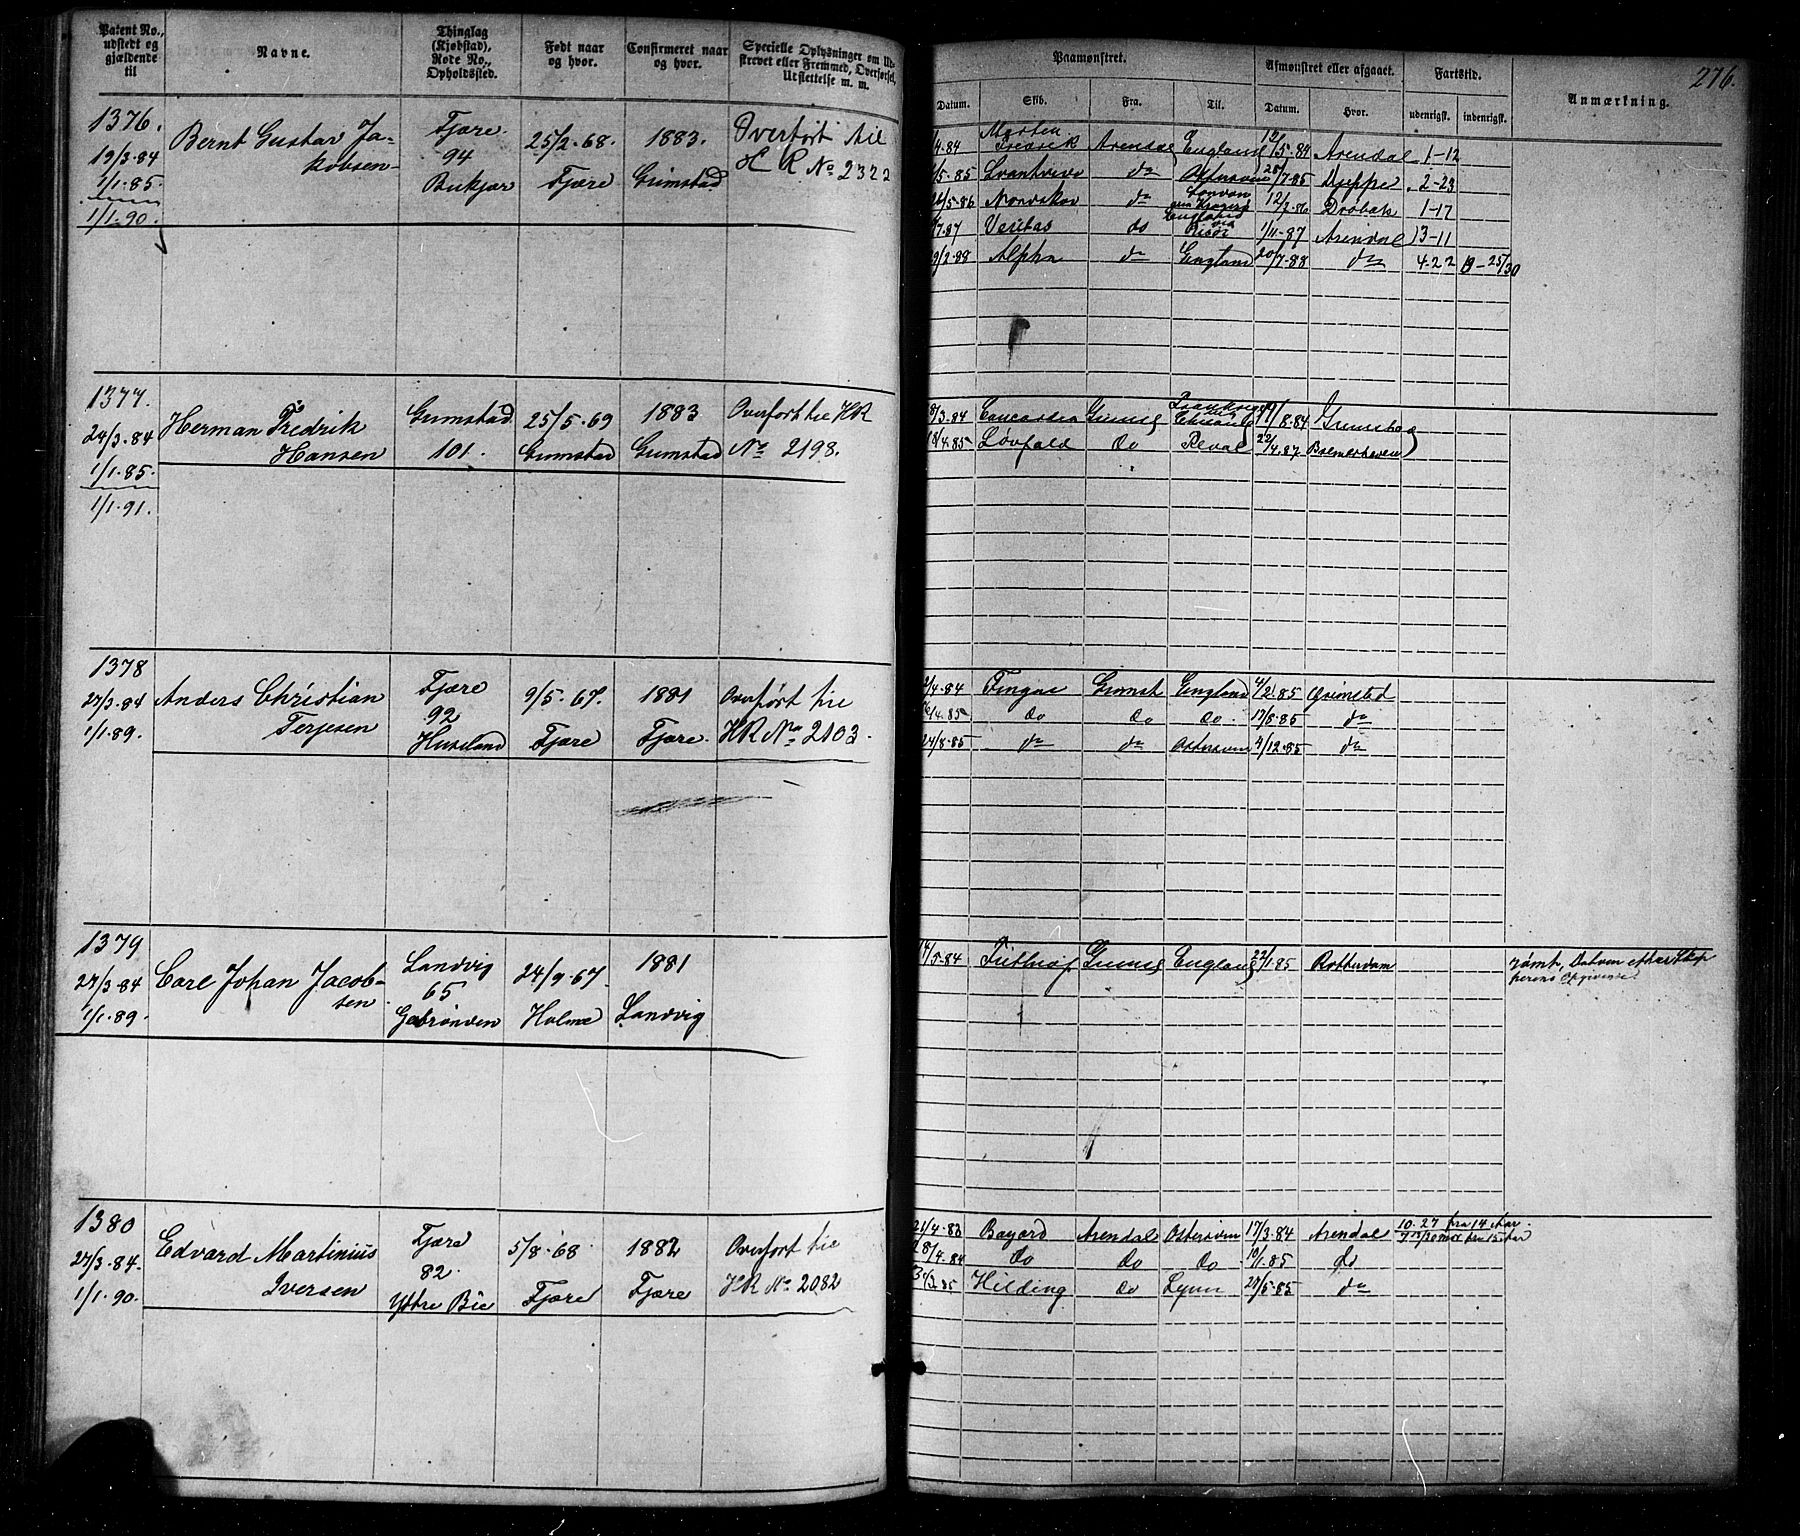 276.
Patent No., udstedt og gjældende til
Navne.
Thinglag (Kjøbstad), Rode No., Opholdssted.
Født naar og hvor.
Confirmeret naar og hvor.
Specielle Oplysninger om Ud-
strevet eller Fremmed, Overførsel,
Udslettelse m. m.
Paamønstret.
Afmønstret eller afgaaet.
Fartstid.
Anmærkning.
Datum. Skib. Fra. Til. Datum. Hvor. udenrigsk. indenrigsk.
1376.
19/3.84
1/1.85.
1/1.90.
Bernt Gustav Ja-
kobsen
Fjære.
94
Bukjær
25/2.68.
Fjære
1883.
Grimstad
Overført til
H R No 2322
4.84 Morten Fredrik Arendal England 12/5.84 Arendal 1-12
5.85 Svantvive do Østersøen 28/7.85 Dieppe 2-23
5.86 Nordskov do 12/7.86 Drøbak 1-17
7.87 Veritas do England Risør 1/11-87 Arendal 13-11
9/2.88 Alpha do England 20/7.88 do 4.22 9-25/30
1377.
24/3.84
1/1.85.
1/1.91.
Herman Fredrik
Hansen
Grimstad
101.
25/5.69
Grimstad
1883
Grimstad
Overført til HR
No 2198.
8/3.84 Concordia Grimst 8.84
4.85 Løvfald do Reval 22/4.87 Bremerhaven
1378
27/3.84
1/1.89.
Anders Christian
Terjesen
Fjære
92
Huseland
9/5.67.
Fjære
1881
Fjære.
Overført til
HR No 2103.
4.84 Fingal Grimst England 4/2.85 Grimstad
4.85 do do do. 17/8.85 do
24/8.85 do do Østersøen 4/12.85 do
1379
27/3.84
1/1.89.
Carl Johan Jacob-
sen
Landvig
65
24/9.67.
Holme
1881
Landvig
14/5.84 Grimst England 22/1.85 Rotterdam rømt, Datoen efter Skip
perens Opgivende
1380
27/3.84.
1/1.90.
Edvard Martinius
Iversen
Fjære
82.
Ydtre Bie
5/8.68
Fjære
1882
Fjære
Overført til
HR No 2082
21/4.83 Bayard Arendal Østersøen 17/3.84 Arendal 10.27 fra 14 Aar.
8/4.84 do do do 10/1.85 do
3/2.85 Hilding do Lynn 29/5.85 do